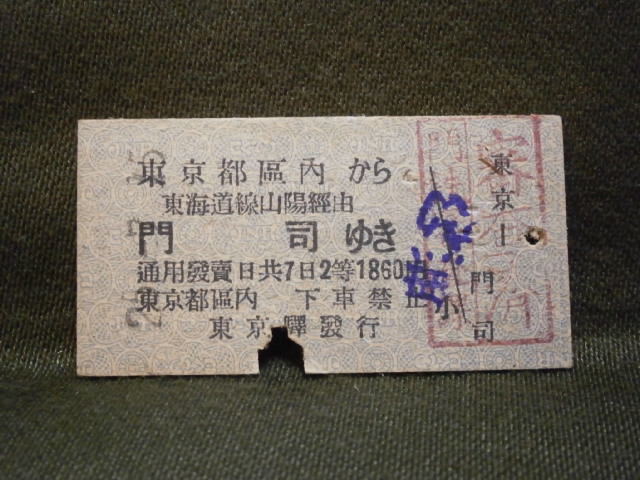 東京都區內から
東海道線山陽經由
門司ゆき
通用發賣日共7日2等1860円
東京都區內 下車禁止
東京驛發行
東京
門司
小